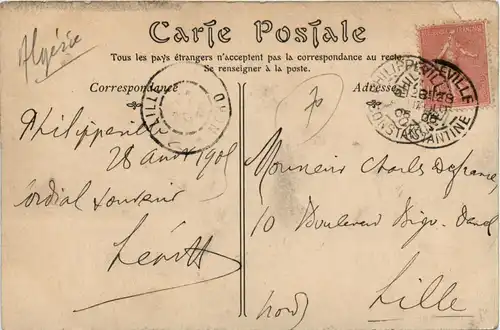 Algérie
Carte Postale
Tous les pays étrangers n'acceptent pas la correspondance au recto
Se renseigner à la poste.
Correspondance
Adresse
PHILIPPEVILLE
CONSTANTINE
LILLE
NORD
Philippeville
28 Août 1905
Cordial souvenir
Monsieur Charles Defrance
10 Boulevard Bigo-Danel
Lille
(Nord)